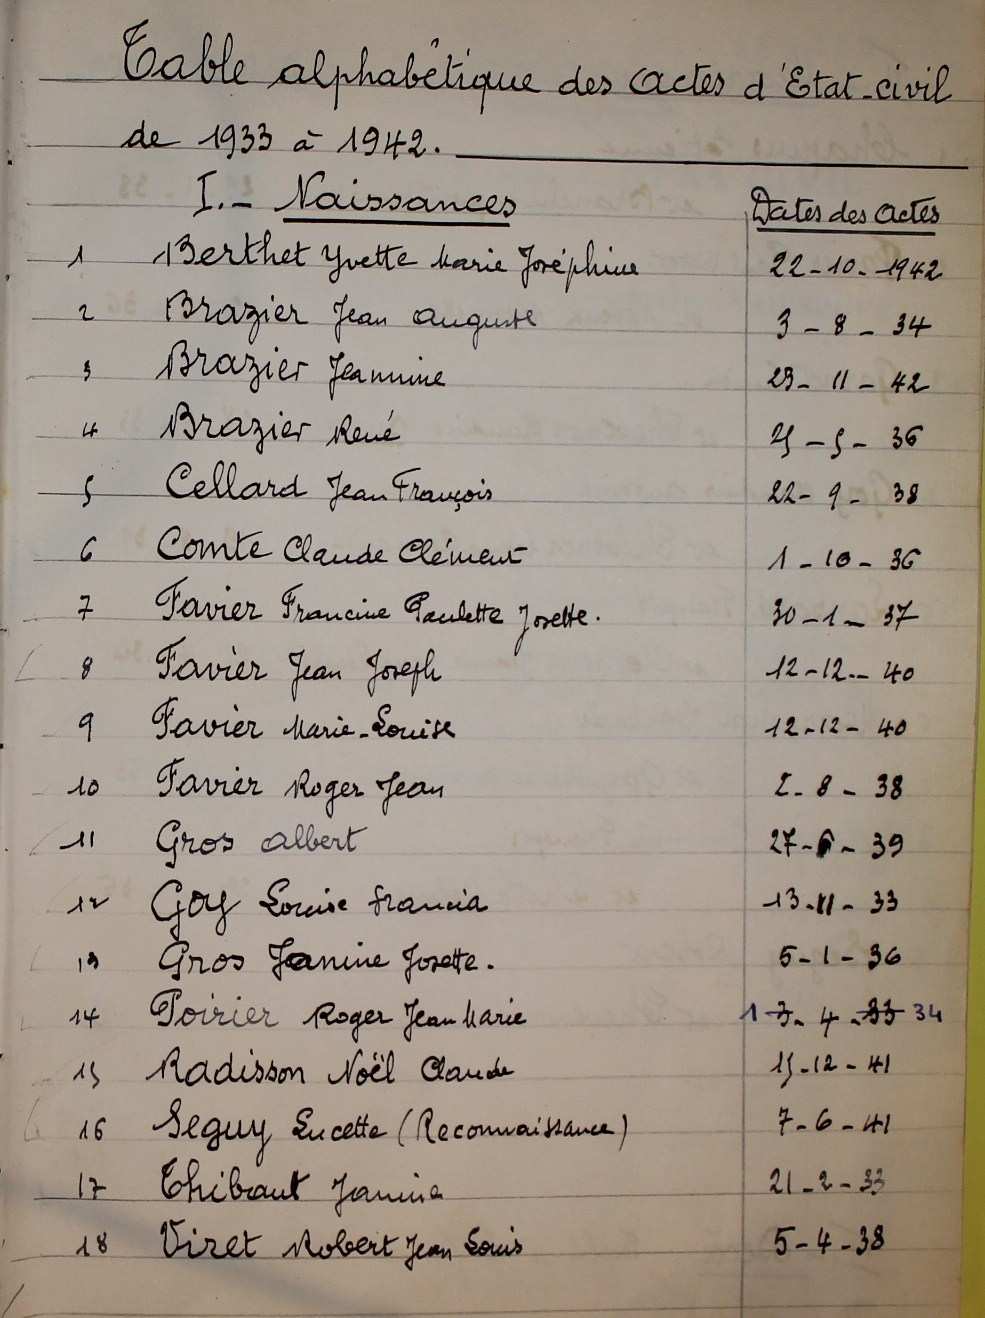 Table alphabétique des actes d'Etat-civil
de 1933 à 1942.
I.- Naissances Dates des actes
1 Berthet Yvette Marie Joséphine 22-10-1942
2 Brazier Jean Auguste 3-8-34
3 Brazier Jeannine 23-11-42
4 Brazier René 25-5-36
5 Cellard Jean François 22-9-38
6 Comte Claude Clément 1-10-36
7 Favier Francine Paulette Josette. 30-1-37
8 Favier Jean Joseph 12-12-40
9 Favier Marie-Louise 12-12-40
10 Favier Roger Jean 2-8-38
11 Gros Albert 27-6-39
12 Goy Louise Francia 13-11-33
13 Gros Janine Josette. 5-1-36
14 Poirier Roger Jean Marie 1 3-4-33 34
15 Radisson Noël Claude 15-12-41
16 Seguy Lucette (Reconnaissance) 7-6-41
17 Thibaut Janine 21-2-33
18 Viret Robert Jean Louis 5-4-38